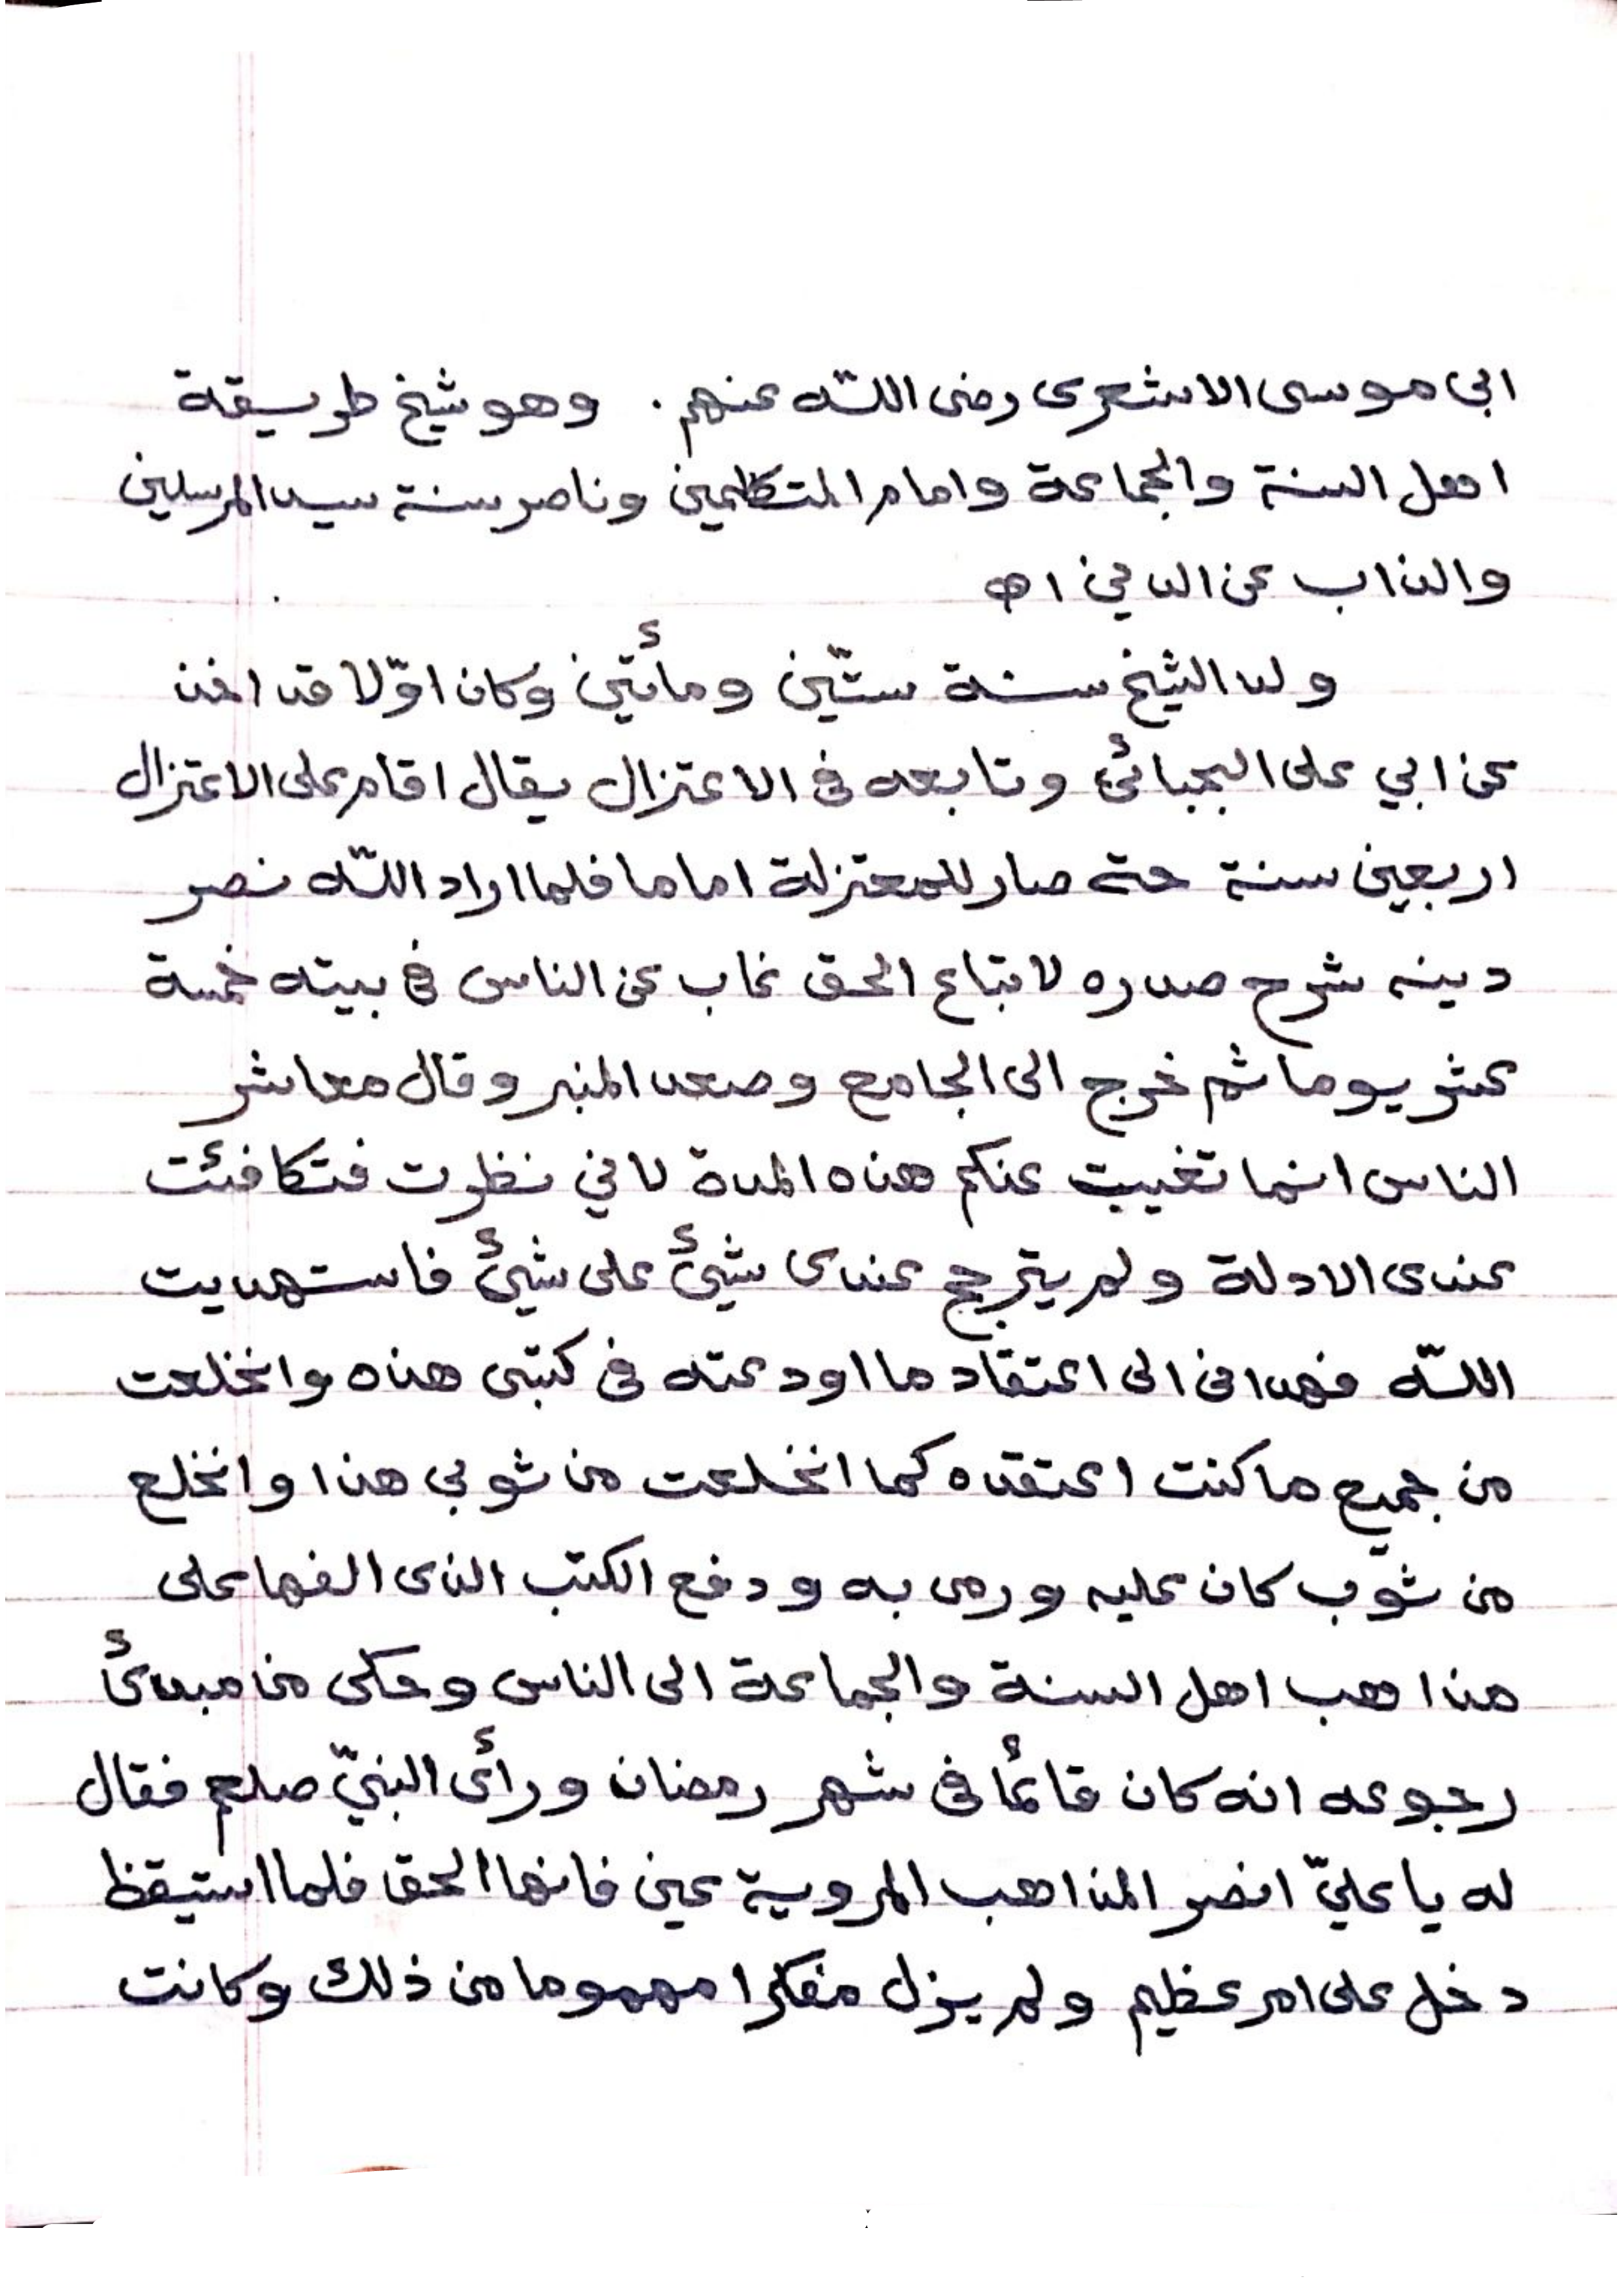 ابى موسى الاشعرى رضى اللّه عنهم. وهو شيخ طريقة
اهل السنة والجماعة وامام المتكلمين وناصر سنة سيد المرسلين
والذاب عن الدين اه
ولد الشيخ سنة ستّين ومأتين وكان اوّلا قد اخذ
عن ابي على الجبائى وتابعه فى الاعتزال يقال اقام على الاعتزال
اربعين سنة حتى صار للمعتزلة اماما فلما اراد اللّه نصر
دينه شرح صدره لاتباع الحق غاب عن الناس فى بيته خمسة
عشر يوما ثم خرج الى الجامع وصعد المنبر وقال معاشر
الناس انما تغيبت عنكم هذه المدة لاني نظرت فتكافئت
عندى الادلة ولم يترجح عندى شيئ على شيئ فاستهديت
اللّه فهدانى الى اعتقاد ما اودعته فى كتبى هذه وانخلعت
من جميع ما كنت اعتقده كما انخلعت من ثوبي هذا وانخلع
من ثوب كان عليه ورمى به ودفع الكتب الذى الفها على
مذاهب اهل السنة والجماعة الى الناس وحكى من مبدئ
رجوعه انه كان قائما فى شهر رمضان ورأى النبيّ صلعم فقال
له يا عليّ انصر المذاهب المروية عني فانها الحق فلما استيقظ
دخل على امر عظيم ولم يزل مفكرا مهموما من ذلك وكانت